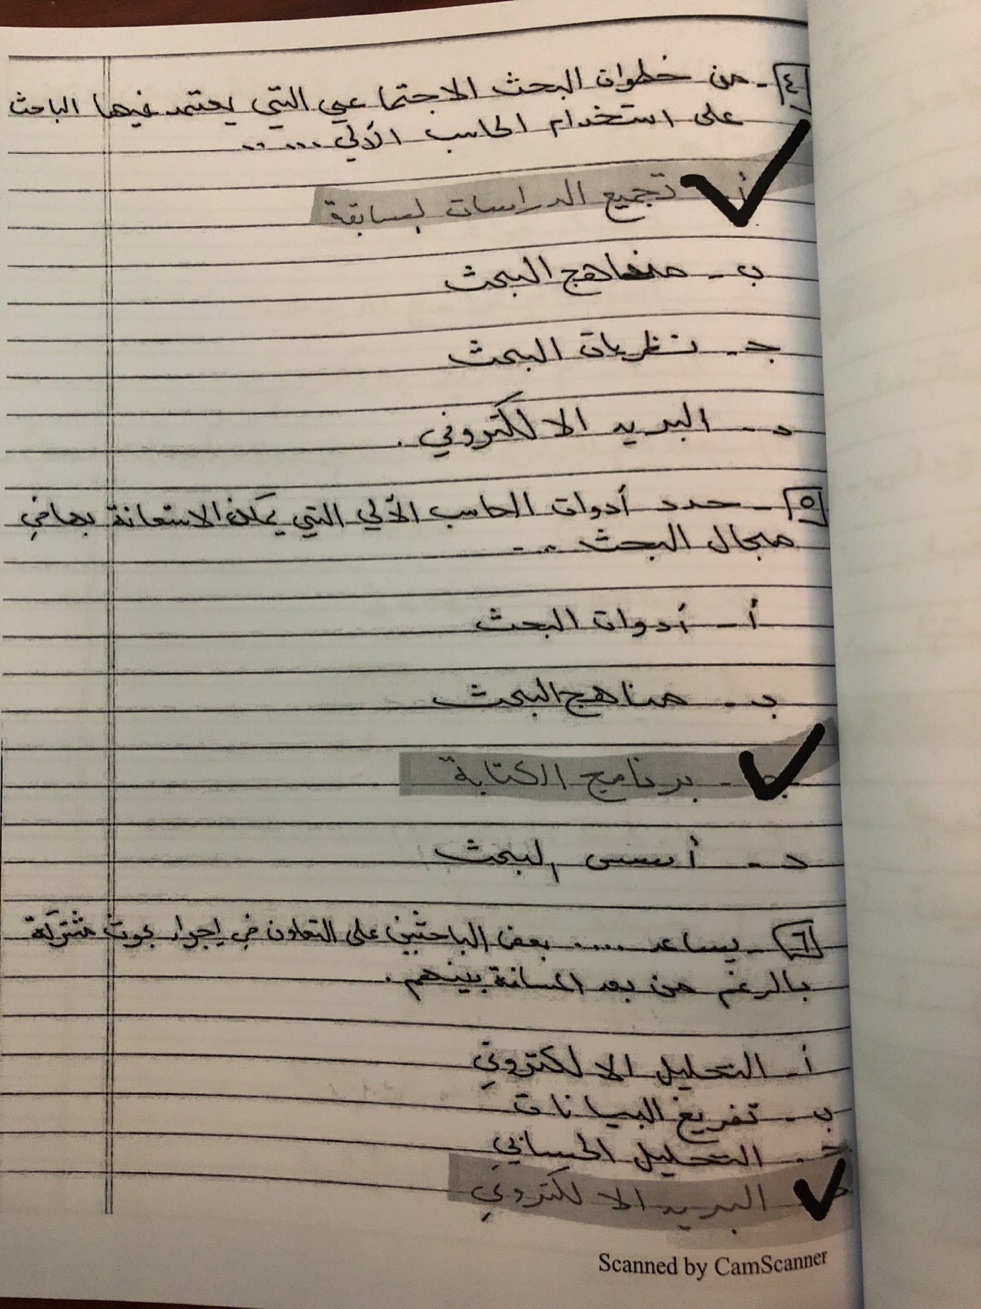 ٤- من خطوات البحث الاجتماعي التي يعتمد فيها الباحث
على استخدام الحاسب الآلي .....
أ- تجميع الدراسات السابقة
ب- مناهج البحث
جـ- نظريات البحث
د- البريد الالكتروني .
٥- حدد أدوات الحاسب الآلي التي يمكن الاستعانة بها في
مجال البحث ...
أ- أدوات البحث
ب- مناهج البحث
جـ- برنامج الكتابة
د- أسس البحث
٦- يساعد .... بعض الباحثين على التعاون في إجراء بحوث مشتركة
بالرغم من بعد المسافة بينهم .
أ- التحليل الالكتروني
ب- تفريغ البيانات
جـ- التحليل الحسابي
د- البريد الالكتروني
Scanned by CamScanner